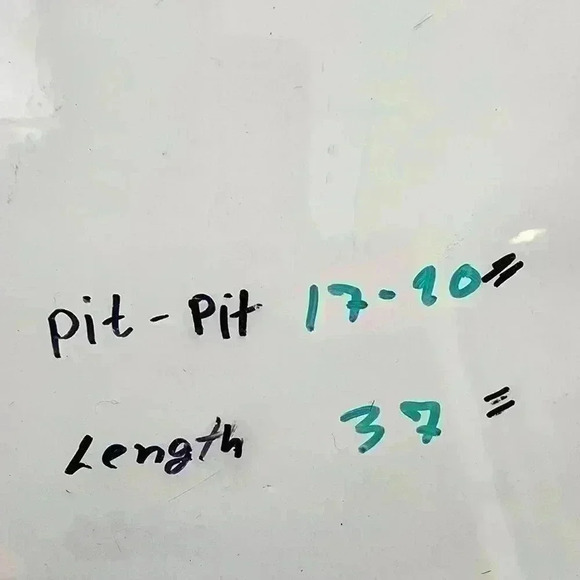 pit - Pit 17-20"
Length 37"